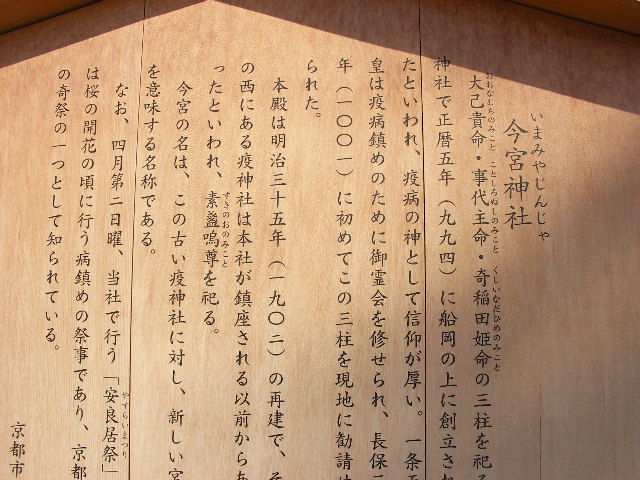 いまみやじんじゃ
今宮神社
おおなむちのみこと ことしろぬしのみこと くしいなだひめのみこと
大己貴命・事代主命・奇稲田姫命の三柱を祀る
神社で正暦五年（九九四）に船岡の上に創立され
たといわれ、疫病の神として信仰が厚い。一条天
皇は疫病鎮めのために御霊会を修せられ、長保三
年（一〇〇一）に初めてこの三柱を現地に勧請せ
られた。
本殿は明治三十五年（一九〇二）の再建で、そ
の西にある疫神社は本社が鎮座される以前からあ
すさのおのみこと
ったといわれ、素盞嗚尊を祀る。
今宮の名は、この古い疫神社に対し、新しい宮
を意味する名称である。
やすらいまつり
なお、四月第二日曜、当社で行う「安良居祭」
は桜の開花の頃に行う病鎮めの祭事であり、京都
の奇祭の一つとして知られている。
京都市